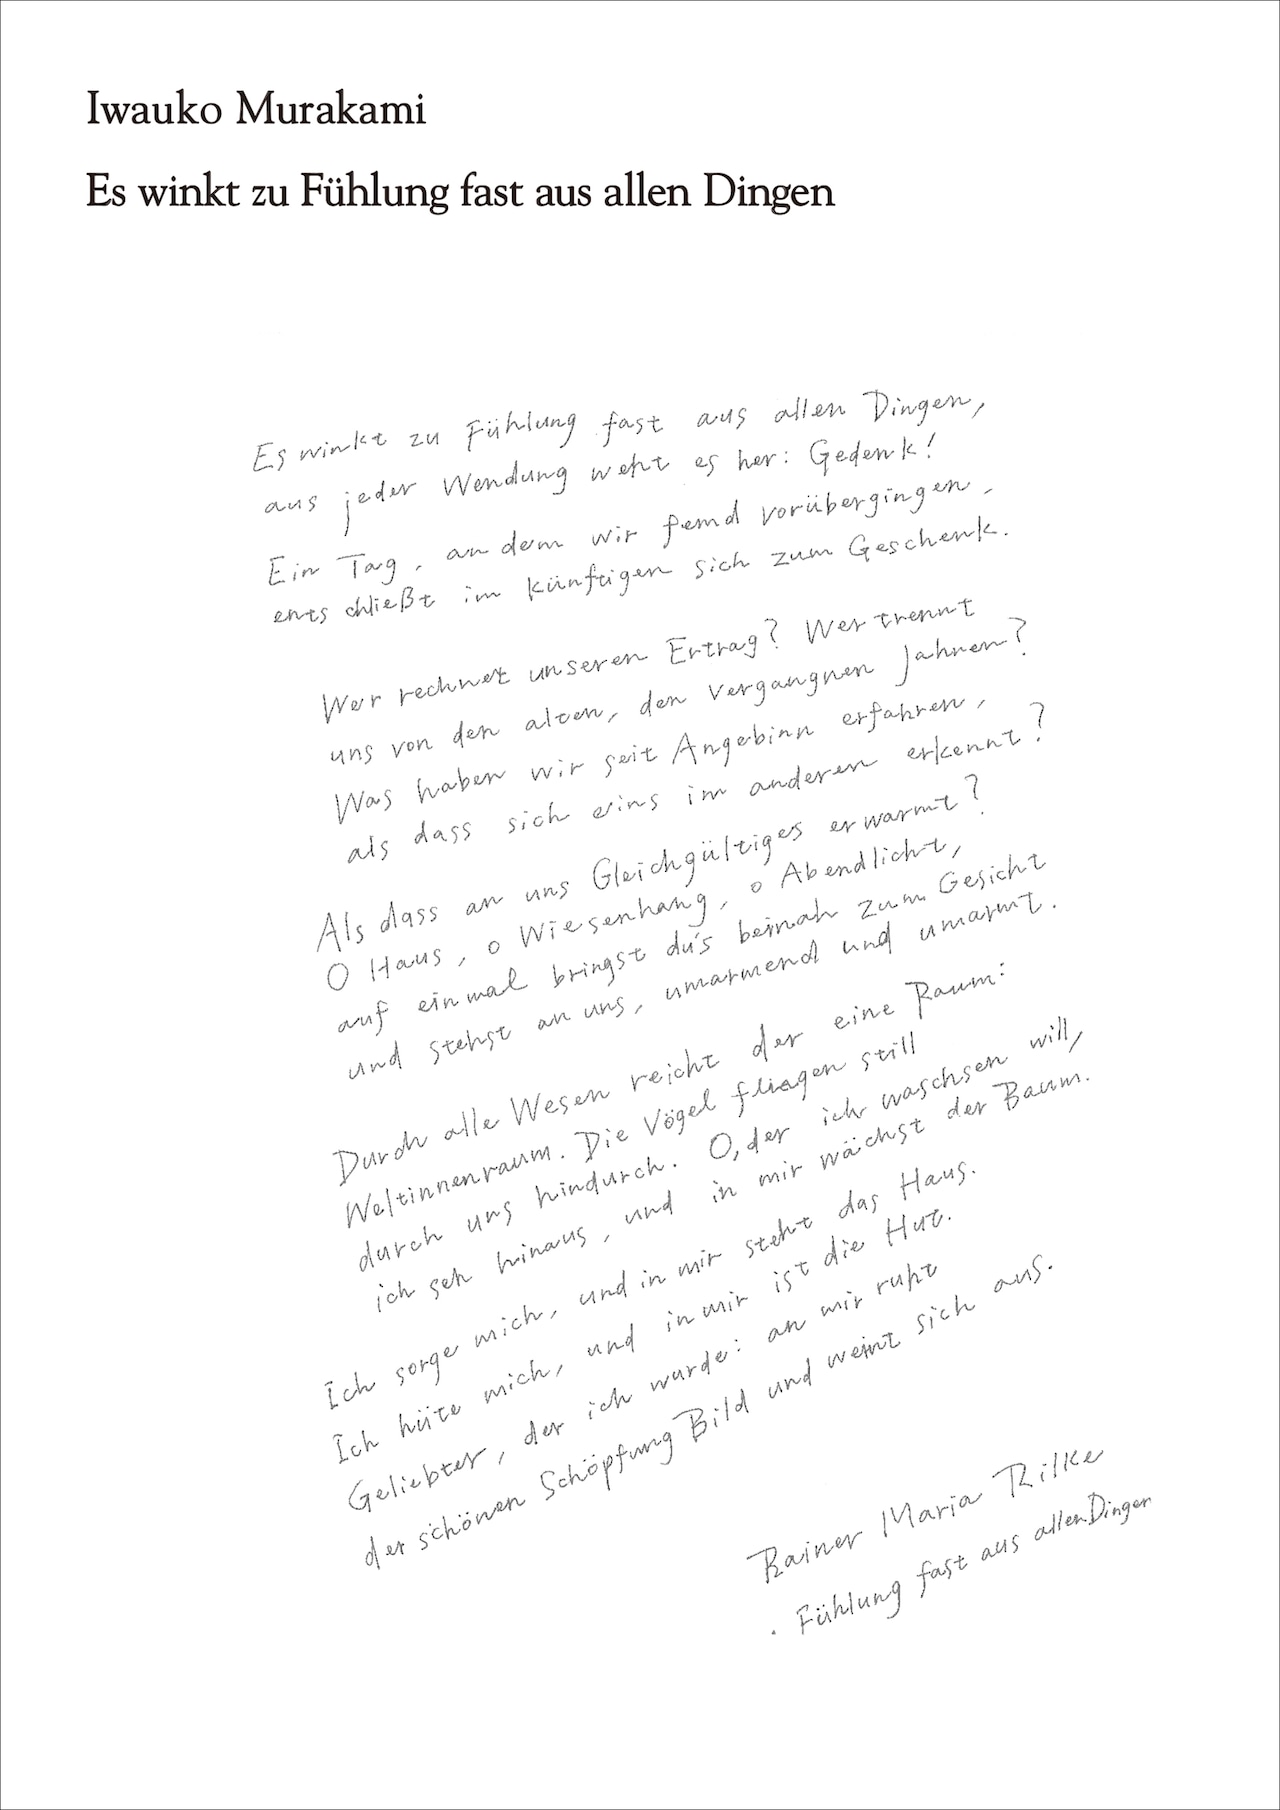 Iwauko Murakami
Es winkt zu Fühlung fast aus allen Dingen
Es winkt zu Fühlung fast aus allen Dingen,
aus jeder Wendung weht es her: Gedenk!
Ein Tag, an dem wir femd vorübergingen,
entschließt im künftigen sich zum Geschenk.
Wer rechnet unseren Ertrag? Wer trennt
uns von den alten, den vergangnen Jahren?
Was haben wir seit Angebinn erfahren,
als dass sich eins im anderen erkennt?
Als dass an uns Gleichgültiges erwarmt?
O Haus, o Wiesenhang, o Abendlicht,
auf einmal bringst du's beinah zum Gesicht
und stehst an uns, umarmend und umarmt.
Durch alle Wesen reicht der eine Raum:
Weltinnenraum. Die Vögel fliegen still
durch uns hindurch. O, der ich waschsen will,
ich seh hinaus, und in mir wächst der Baum.
Ich sorge mich, und in mir steht das Haus.
Ich hüte mich, und in mir ist die Hut.
Geliebter, der ich wurde: an mir ruht
der schönen Schöpfung Bild und weint sich aus.
Rainer Maria Rilke
. Fühlung fast aus allen Dingen